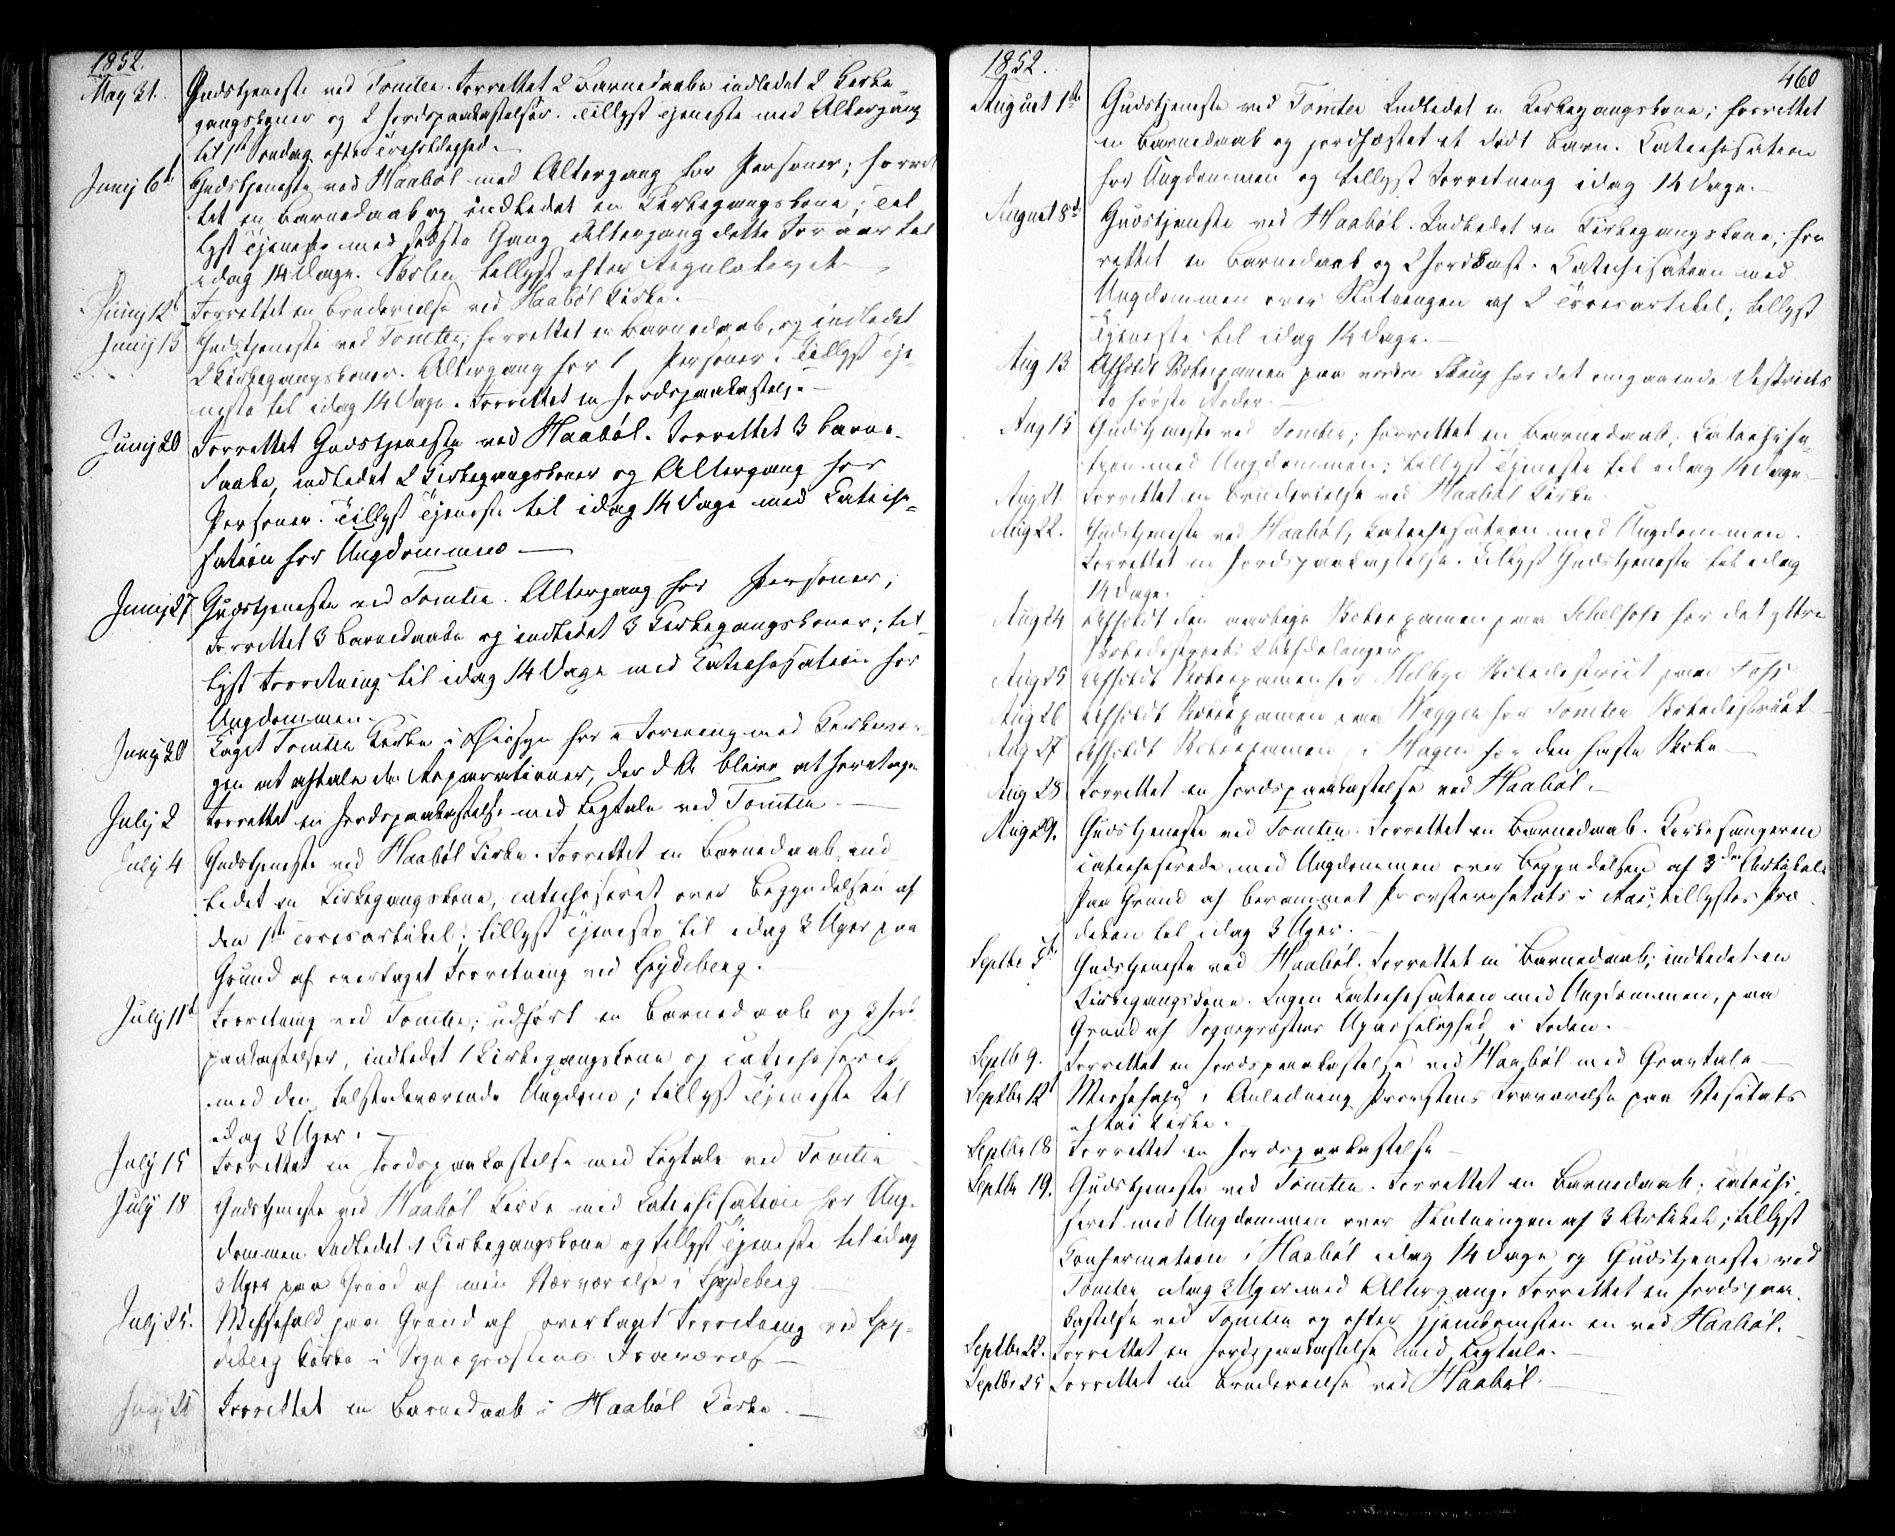 1852.
May 31. Gudstjeneste ved Tomter. Forrettet 2 Barnedaabe indledet 2 Kirke-
gangskoner og 2 Jordspaakastelser. Tillyst Tjeneste med Altergang
til 1ste Søndag efter Trefoldighed.
Junij 6te Gudstjeneste ved Haabøl med Altergang for Personer; forret
tet en Barnedaab og indledet en Kirkegangskone; Til
lyst Tjeneste med sidste Gang Altergang dette Foraar til
idag 14 Dage. Skolen tillyst efter Regulativet
Junij 12te Forrettet en Brudevielse ved Haabøl Kirke.
Junij 13 Gudstjeneste ved Tomter; forrettet en Barnedaab, og indledet
2 Kirkegangskoner. Altergang for 1 Personer. Tillyst Tje-
neste til idag 14 Dage. Forrettet en Jordspaakastelse
Junij 20 Forrettet Gudstjeneste ved Haabøl. Forrettet 3 Barne-
daabe, indledet 2 Kirkegangskoner og Altergang for
Personer. Tillyst Tjeneste til idag 14 Dage med Catechi-
sation for Ungdommen
Junij 27 Gudstjeneste ved Tomter. Altergang for Personer;
Forrettet 3 Barnedaabe og indledet 3 Kirkegangskoner; til-
lyst Forretning til idag 14 Dage med Catechesation for
Ungdommen.
Junij 30 Taget Tomter Kirke i Øiesyn for i Forening med Kirkevær-
gen at aftale de Reparationer, der blive at foretage
Julij 2 Forrettet en Jordspaakastelse med Ligtale ved Tomter
July 4 Gudstjeneste ved Haabøl Kirke. Forrettet en Barnedaab, ind
ledet en Kirkegangskone, catechiseret over Begyndelsen af
den 1ste Troesartikel; tillyst Tjeneste til idag 3 Uger paa
Grund af overtaget Forretning ved Spydeberg.
Julij 11te Forretning ved Tomter; udført en Barnedaab og 3 Jord
paakastelser, indledet 1 Kirkegangskone og catechiseret
med den tilstedeværende Ungdom; tillyst Tjeneste til
idag 3 Uger.
July 15 Forrettet en Jordspaakastelse med Ligtale ved Tomter
July 18 Gudstjeneste ved Haabøl Kirke med Catechisation for Ung-
dommen. Indledet 1 Kirkegangskone og tillyst Tjeneste til idag
3 Uger paa Grund af min Nærværelse i Spydeberg
Julij 25. Messefald paa Grund af overtaget Forretning ved Spy-
deberg Kirke i Sognepræstens Fravær
Forrettet en Barnedaab i Haabøl Kirke.
1852. 460
August 1ste Gudstjeneste ved Tomter Indledet en Kirkegangskone; forrettet
en Barnedaab og jordfæstet et dødt Barn. Catechesation
for Ungdommen og tillyst Forretning idag 14 Dage.
August 8de Gudstjeneste ved Haabøl. Indledet en Kirkegangskone; for
rettet en Barnedaab og 2 Jordkast. Catechisation med
Ungdommen over Slutningen af 2 Troesartikel; tillyst
Tjeneste til idag 14 Dage.
Aug 13 Afholdt Skoleexamen paa nordre Skaug for det omgaaende Districts
to første Roder.
Aug 15 Gudstjeneste ved Tomter; forrettet en Barnedaab; Catechisa-
tion med Ungdommen; tillyst Tjeneste til idag 14 Dage.
Aug 21. Forrettet en Brudevielse ved Haabøl Kirke
Aug 22. Gudstjeneste ved Haabøl, Catechesation med Ungdommen.
Forrettet en Jordspaakastelse. Tillyst Gudstjeneste til idag
14 Dage.
Aug 24 Afholdt den aarlige Skoleexamen paa for det yttre
Skoledistricts
Aug 25 Afholdt Skoleexamen for Melbye Skoledistrict paa Foss
Aug 26 Afholdt Skoleexamen paa for Tomter Skoledistrict
Aug 27 Afholdt Skoleexamen i Hagen for den faste Skole
Aug 28 Forrettet en Jordspaakastelse ved Haabøl.
Aug 29. Gudstjeneste ved Tomter. Forrettet en Barnedaab. Kirkesangeren
catecheserede med Ungdommen over Begyndelsen af 3die Artikel
Paa Grund af berammet Provstevisitats i Aas, tillystes Præ
diken til idag 3 Uger.
Septbr 5te Gudstjeneste ved Haabøl. Forrettet en Barnedaab; indledet en
Kirkegangskone. Ingen Catechesation med Ungdommen, paa
Grund af Sognepræstens Upasselighed i Foden.
Septb 9. Forrettet en Jordspaakastelse ved Haabøl med Gravtale
Septbr 12te Messefald i Anledning Provstens Fraværelse paa Visitats
i Aas Kirke.
Septbr 18 Forrettet en Jordspaakastelse
Septbr 19. Gudstjeneste ved Tomter. Forrettet en Barnedaab; catechi-
seret med Ungdommen over Slutningen af 3 Artikel; tillyst
Confirmation i Haabøl idag 14 Dage og Gudstjeneste ved
Tomter idag 3 Uger med Altergang. Forrettet en Jordspaa-
kastelse ved Tomter og efter Hjemkomsten en ved Haabøl.
Septbr 22. Forrettet en Jordspaakastelse med Ligtale.
Septbr 25 Forrettet en Brudevielse ved Haabøl.